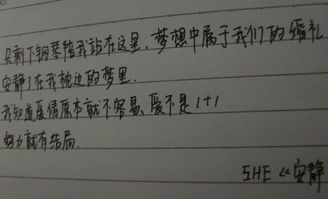 只剩下钢琴陪我站在这里，梦想中属于我们的婚礼
安静了在我枕边的梦里.
我知道爱情原本就不容易、爱不是1+1
努力就有结局.
SHE 《安静